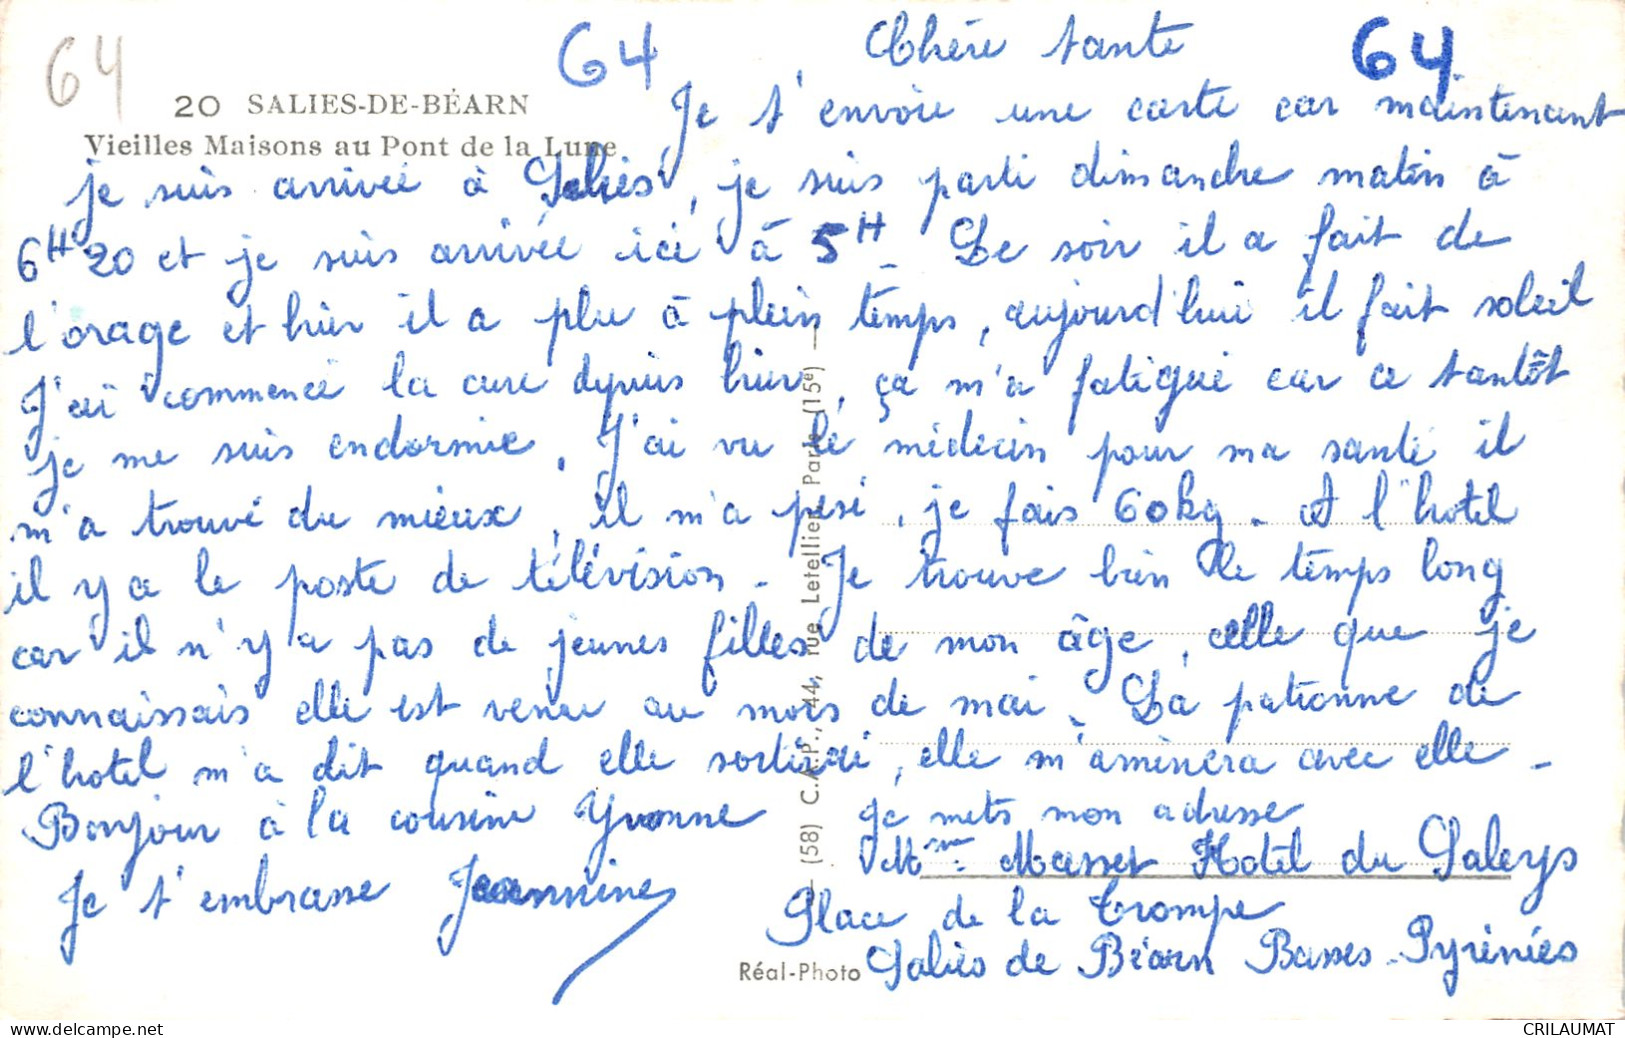 64
64
64
20 SALIES-DE-BÉARN
Vieilles Maisons au Pont de la Lune
Chère tante
Je t'envoie une carte car maintenant
je suis arrivée à Salies, je suis parti dimandre matin à
6H20 et je suis arrivée ici à 5H. Le soir il a fait de
l'orage et hier il a plu à plein temps, aujourd'hui il fait soleil
J'ai commencé la cure depuis hier, ça m'a fatigué car ce tantôt
je me suis endormie. J'ai vu le médecin pour ma santé il
m'a trouvé du mieux, il m'a pesé, je fais 60kg. A l'hotel
il y a le poste de télévision. Je trouve bien le temps long
car il n'y a pas de jeunes filles de mon âge, celle que je
connaissais elle est venu au mois de mai. La patronne de
l'hotel m'a dit quand elle sortirai, elle m'amènera avec elle.
Bonjour à la cousine Yvonne
Je t'embrasse Jeannine
Je mets mon adresse
Mme Masset Hotel du Saleys
Place de la Trompe
Salies de Béarn Basses-Pyrénées
(58) C.A.P., 44, rue Letellier, Paris (15e)
Réal-Photo
delcampe.net
CRILAUMAT